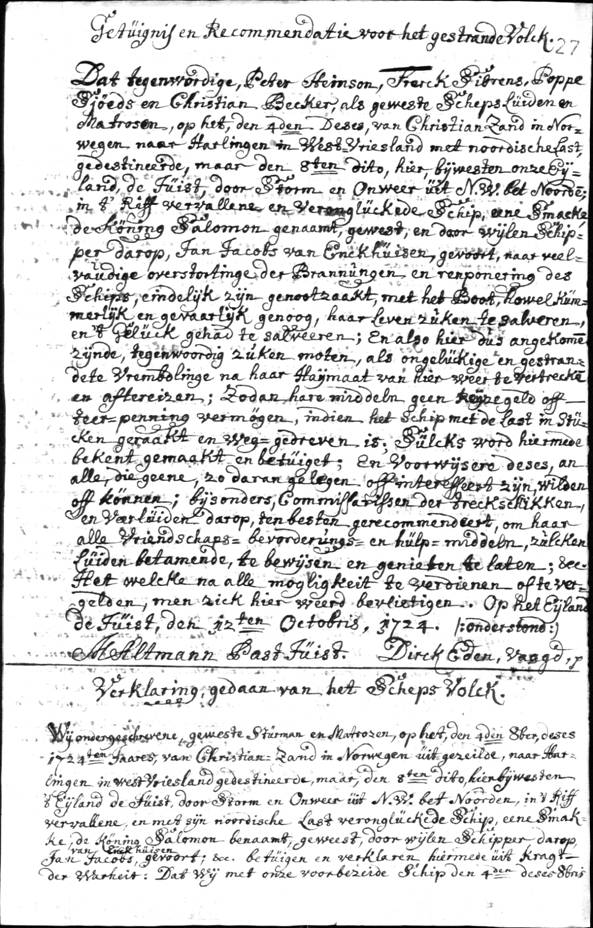 Getüignis en Recommendatie voor het gestrande Volck.
27
Dat tegenwordige, Peter Heinson, Frerck Sibrens, Poppe
Sjoeds en Christian Becker, als geweste Scheps Lüiden en
Matrosen, op het, den 4den Deses, van Christian Zand in Nor-
wegen naar Harlingen in West-Vriesland met noordische Last,
gedestineerde, maar den 8ten dito, hier bijwesten onze Ey-
land, de Jüist, door Storm en Onweer üit N.W. bet Noorde,
in 't Riff vervallene en veronglückede Schip, eene Smacke
de Köning Salomon genaamt, gewest, en door wijlen Schip-
per darop, Jan Jacobs van Enckhüisen, gevoort, naar veel-
vaudige overstortinge der Brannüngen en renponering des
Schips, eindelijk zijn genootzaakt, met het Boot, howel küm-
merlijk en gevaarlijk genoog, haar leven züken te salveren,
en 't Gelück gehad te salveeren; En also hier dus angekome
zijnde, tegenwoordig züken moten, als ongelückige en gestran-
dete Vrembdlinge na haar Haijmaat van hier weer te vertrecke
en aftereizen; Zodan hare middeln geen reijsegeld off
teer-penning vermögen, indien het Schip met de Last in Stü-
cken geraakt en weg-gedreven is; Sülcks word hiermede
bekent gemaakt en betüiget; En Voorwijsere deses, an
alle, die geene, zo daran gelegen off interesseert zijn, wilden
off können; bijsonders, Commissarissen der treckschikken,
en Værlüiden darop, ten besten gerecommendeert, om haar
alle Vriendschaps- bevorderüngs- en hülp-middeln, zülcken
Lüiden betamende, te bewijsen en genieten te laten; &ec.
Het welcke na alle mögligkeit te verdienen ofte ver-
gelden, men zick hier weerd bevlietigen. Op het Eyland
de Jüist, den 12ten Octobris, 1724. /:onderstond:/
M Altmann Past Jüist. Dirck Eden, Vaagd,
Verklaring, gedaan van het Scheps Volck.
Wij ondergeschrevene, geweste Stürman en Matrozen, op het, den 4den 8ber, deses
1724ten Jaares, van Christian-Zand in Norwegen üit gezeilde, naar Har-
lingen in west Vriesland gedestineerde, maar, den 8ten dito, hier bijwesten
't Eyland de Jüist, door Storm en Onweer üit N.W. bet Noorden, in 't Riff
vervallene, en met sijn noordische Last veronglückede Schip, eene Smak-
ke, de Köning Salomon benaamt, geweest, door wijlen Schipper darop,
Jan Jacobs van Enckhüisen, gevoort; &c. betüigen en verklaren hiermede üit kragt
der Warheit: Dat Wij met onze voorbezeide Schip den 4den deses 8bris